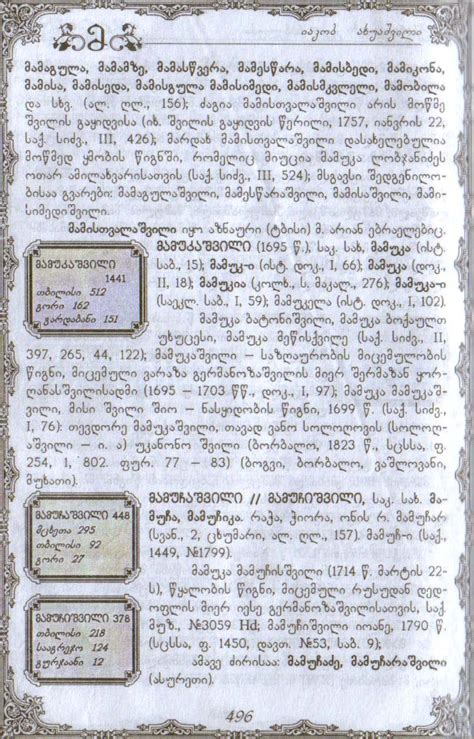 მ
იაკობ ახუაშვილი
მამაგულა, მამამზე, მამასწვერა, მამესწარა, მამისბედი, მამიკონა,
მამისა, მამისედა, მამისგულა მამისიმედი, მამისმკვლელი, მამობილა
და სხვ. (ალ. ღლ., 156); ძაგია მამისთვალაშვილი არის მოწმე
შვილის გაყიდვისა (იხ. შვილის გაყიდვის წერილი, 1757, იანვრის 22,
საქ. სიძვ., III, 426); მარდახ მამისთვალაშვილი დასახელებულია
მოწმედ ყმობის წიგნში, რომელიც მიუცია მამუკა ლობჯანიძეს
ოთარ ამილახვარისათვის (საქ. სიძვ., III, 524); მსგავსი შედგენილო-
ბისაა გვარები: მამაგულაშვილი, მამესწარაშვილი, მამისაშვილი, მამი-
სიმედიშვილი.
მამისთვალაშვილი იყო აზნაური (ტბისი) მ. არიან ებრაელებიც.
მამუკაშვილი
1441
თბილისი 512
გორი 162
გარდაბანი 151
მამუკაშვილი (1695 წ.), საკ. სახ. მამუკა (ისტ.
საბ., 15); მამუკ-ი (ისტ. დოკ., I, 66); მამუკა (დოკ.,
II, 18); მამუკია (კოლხ., ს. მაკალ., 276); მამუკა-ი
(საეკლ. საბ., I, 59); მამუკელა (ისტ. დოკ., I, 102).
მამუკა ბატონიშვილი, მამუკა ბოქაულთ
უხუცესი, მამუკა მეწისქვილე (საქ. სიძვ., II,
397, 265, 44, 122); მამუკაშვილი – საზღაურობის მიცემულობის
წიგნი, მიცემული ვარაზა გერმანოზაშვილის მიერ შერმაზან ყორ-
ღანასშვილისადმი (1695 – 1703 წწ., დოკ., I, 97); მამუკა მამუკაშ-
ვილი, მისი შვილი შიო – ნასყიდობის წიგნი, 1699 წ. (საქ. სიძვ.,
I, 76): თევდორე მამუკაშვილი, თავად ვანო სოლოღოვის (სოლოღ-
აშვილი – ი. ა) უკანონო შვილი (ბორბალო, 1823 წ., სცსსა, ფ.
254, 1, 802. ფურ. 77 – 83) (ბოგვი, ბორბალო, ვაშლოვანი,
მუხათი).
მამუჩაშვილი 448
მცხეთა 295
თბილისი 92
გორი 27
მამუჩაშვილი // მამუჩიშვილი, საკ. სახ. მა-
მუჩა, მამუჩიკა. რაჭა, ქიორა, ონის რ. მამუჩარ
(სვან., 2, ცხუმარი, ალ. ღლ., 157). მამუჩ-ი (საქ.,
1449, №1799).
მამუკა მამუჩისშვილი (1714 წ. მარტის 22-
ს), წყალობის წიგნი, მიცემული რუსუდან დედ-
მამუჩიშვილი 378
თბილისი 218
საგარეჯო 124
გურჯაანი 12
ოფლის მიერ იესე გერმანოზაშვილისათვის, საქ.
მუზ., №3059 Hd; მამუჩიშვილი იოანე, 1790 წ.
(სცსსა, ფ. 1450, დავთ. №53, საბ. 9);
ამავე ძირისაა: მამუჩაძე, მამუჩარაშვილი
(ასურეთი).
496